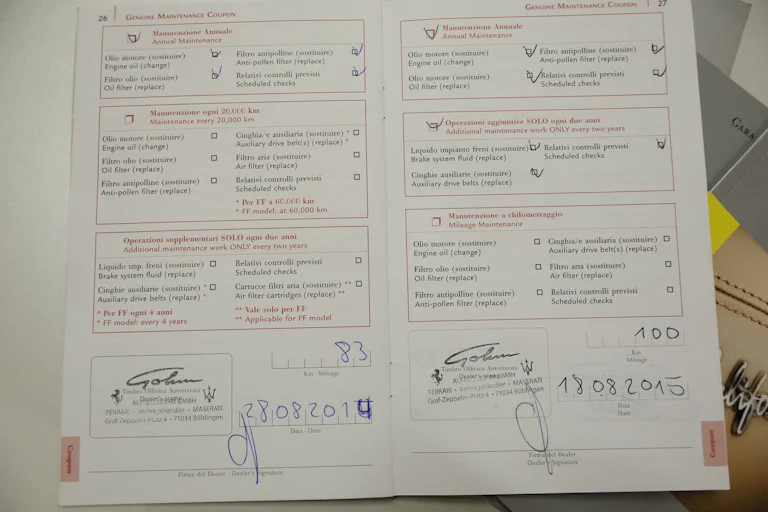 26 GENUINE MAINTENANCE COUPON
Manutenzione Annuale
Annual Maintenance
Olio motore (sostituire)
Engine oil (change)
Filtro antipolline (sostituire)
Anti-pollen filter (replace)
Filtro olio (sostituire)
Oil filter (replace)
Relativi controlli previsti
Scheduled checks
Manutenzione ogni 20.000 km
Maintenance every 20,000 km
Olio motore (sostituire)
Engine oil (change)
Cinghia/e ausiliaria (sostituire) *
Auxiliary drive belt(s) (replace) *
Filtro olio (sostituire)
Oil filter (replace)
Filtro aria (sostituire)
Air filter (replace)
Filtro antipolline (sostituire)
Anti-pollen filter (replace)
Relativi controlli previsti
Scheduled checks
* Per FF a 60.000 km
* FF model: at 60,000 km
Operazioni supplementari SOLO ogni due anni
Additional maintenance work ONLY every two years
Liquido imp. freni (sostituire)
Brake system fluid (replace)
Relativi controlli previsti
Scheduled checks
Cinghie ausiliarie (sostituire) *
Auxiliary drive belts (replace) *
Cartucce filtri aria (sostituire) **
Air filter cartridges (replace) **
* Per FF ogni 4 anni
* FF model: every 4 years
** Vale solo per FF
** Applicable for FF model
83
Km - Mileage
Gohm
Timbro Officina Autorizzata
Dealer's stamp
FERRARI • Vertragshändler • MASERATI
Graf-Zeppelin-Platz 4 • 71034 Böblingen
28082014
Data - Date
Firma del Dealer - Dealer's Signature
Coupon
GENUINE MAINTENANCE COUPON 27
Manutenzione Annuale
Annual Maintenance
Olio motore (sostituire)
Engine oil (change)
Filtro antipolline (sostituire)
Anti-pollen filter (replace)
Olio motore (sostituire)
Oil filter (replace)
Relativi controlli previsti
Scheduled checks
Operazioni aggiuntive SOLO ogni due anni
Additional maintenance work ONLY every two years
Liquido impianto freni (sostituire)
Brake system fluid (replace)
Relativi controlli previsti
Scheduled checks
Cinghie ausiliarie (sostituire)
Auxiliary drive belts (replace)
Manutenzione a chilometraggio
Mileage Maintenance
Olio motore (sostituire)
Engine oil (change)
Cinghia/e ausiliaria (sostituire)
Auxiliary drive belt(s) (replace)
Filtro olio (sostituire)
Oil filter (replace)
Filtro aria (sostituire)
Air filter (replace)
Filtro antipolline (sostituire)
Anti-pollen filter (replace)
Relativi controlli previsti
Scheduled checks
100
Km
Mileage
Gohm
Timbro Officina Autorizzata
Dealer's stamp
FERRARI • Vertragshändler • MASERATI
Graf-Zeppelin-Platz 4 • 71034 Böblingen
18082015
Data
Date
Firma del Dealer
Dealer's Signature
Coupon